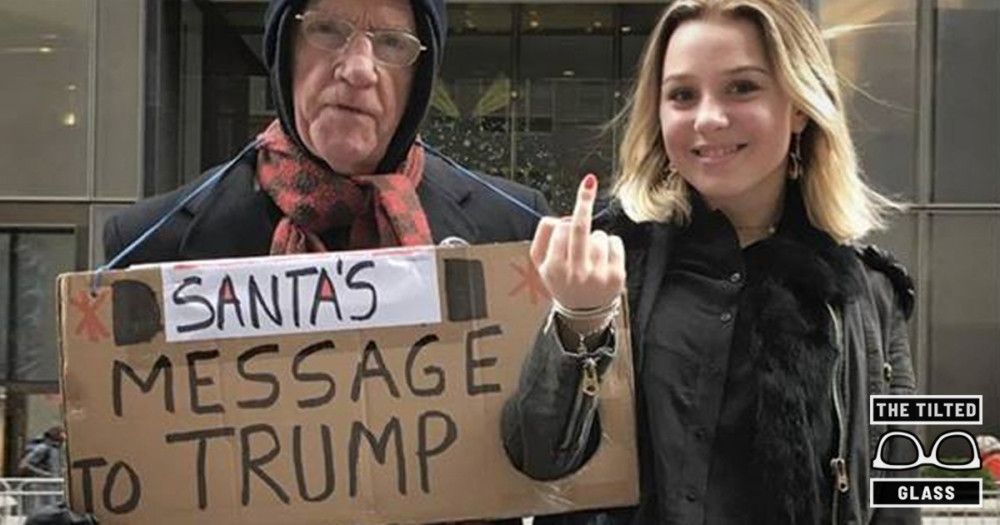 SANTA'S
MESSAGE
TO TRUMP
THE TILTED
GLASS